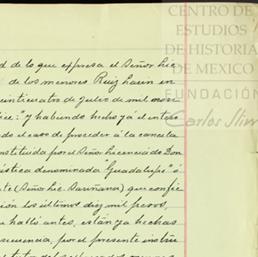 CENTRO DE
ESTUDIOS
DE HISTORIA
DE MEXICO
FUNDACIÓN
Carlos Slim
d de lo que expresa el Señor Lic
de los menores Ruiz Lavin en
einticuatro de Julio de mil nove
y habiendo hecho ya el entero
do el caso de proceder á la cancela
nstituida por el Señor Licenciado Don
ística denominada "Guadalupe" ó
te (Señor Lic. Sariñana) que confie
ión los últimos diez mil pesos,
halló antes, están ya hechas
secuencia, por el presente instru